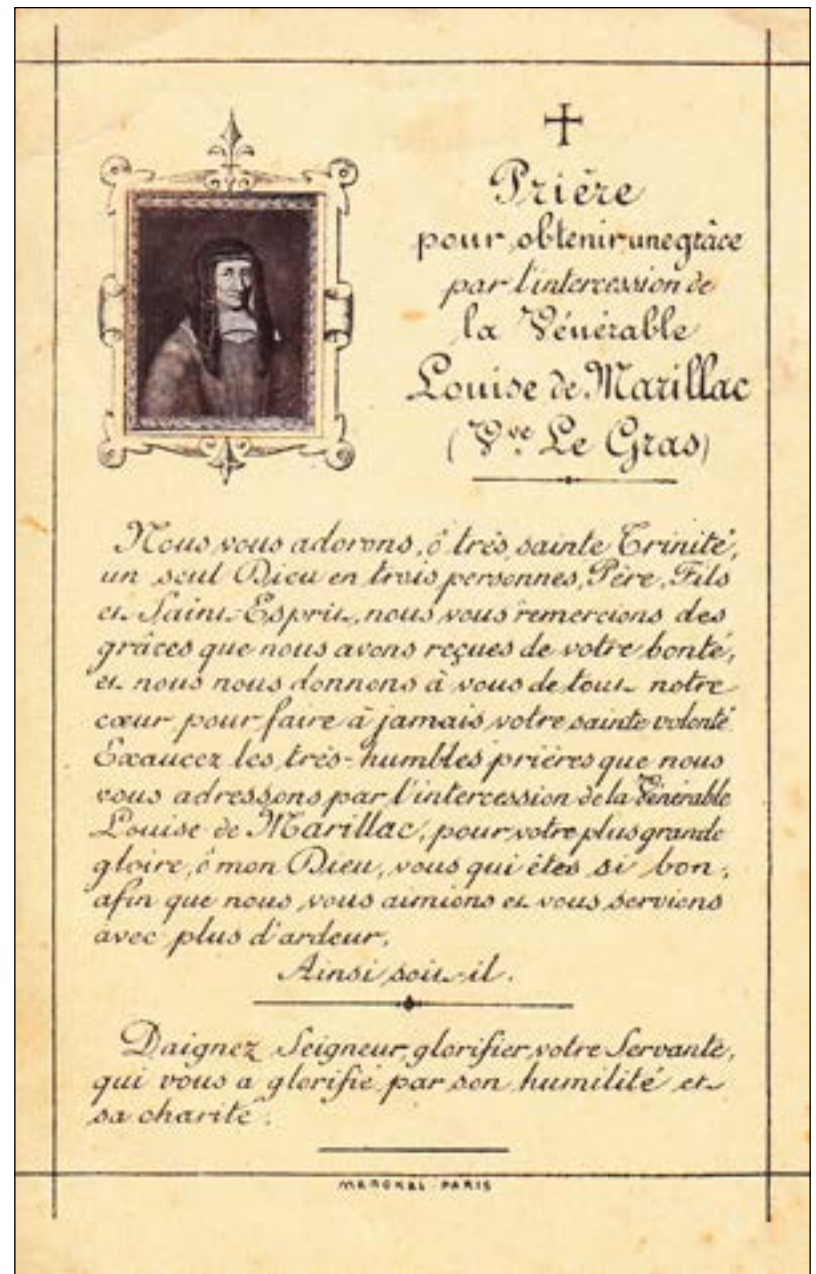 Prière
pour obtenir une grâce
par l'intercession de
la Vénérable
Louise de Marillac
(Vve Le Gras)
Nous vous adorons, ô très sainte Trinité,
un seul Dieu en trois personnes, Père, Fils
et Saint-Esprit, nous vous remercions des
grâces que nous avons reçues de votre bonté,
et nous nous donnons à vous de tout notre
cœur pour faire à jamais votre sainte volonté.
Exaucez les très-humbles prières que nous
vous adressons par l'intercession de la Vénérable
Louise de Marillac, pour votre plus grande
gloire, ô mon Dieu, vous qui êtes si bon,
afin que nous vous aimions et vous servions
avec plus d'ardeur.
Ainsi soit-il.
Daignez Seigneur, glorifier votre Servante,
qui vous a glorifié par son humilité et
sa charité.
PARIS